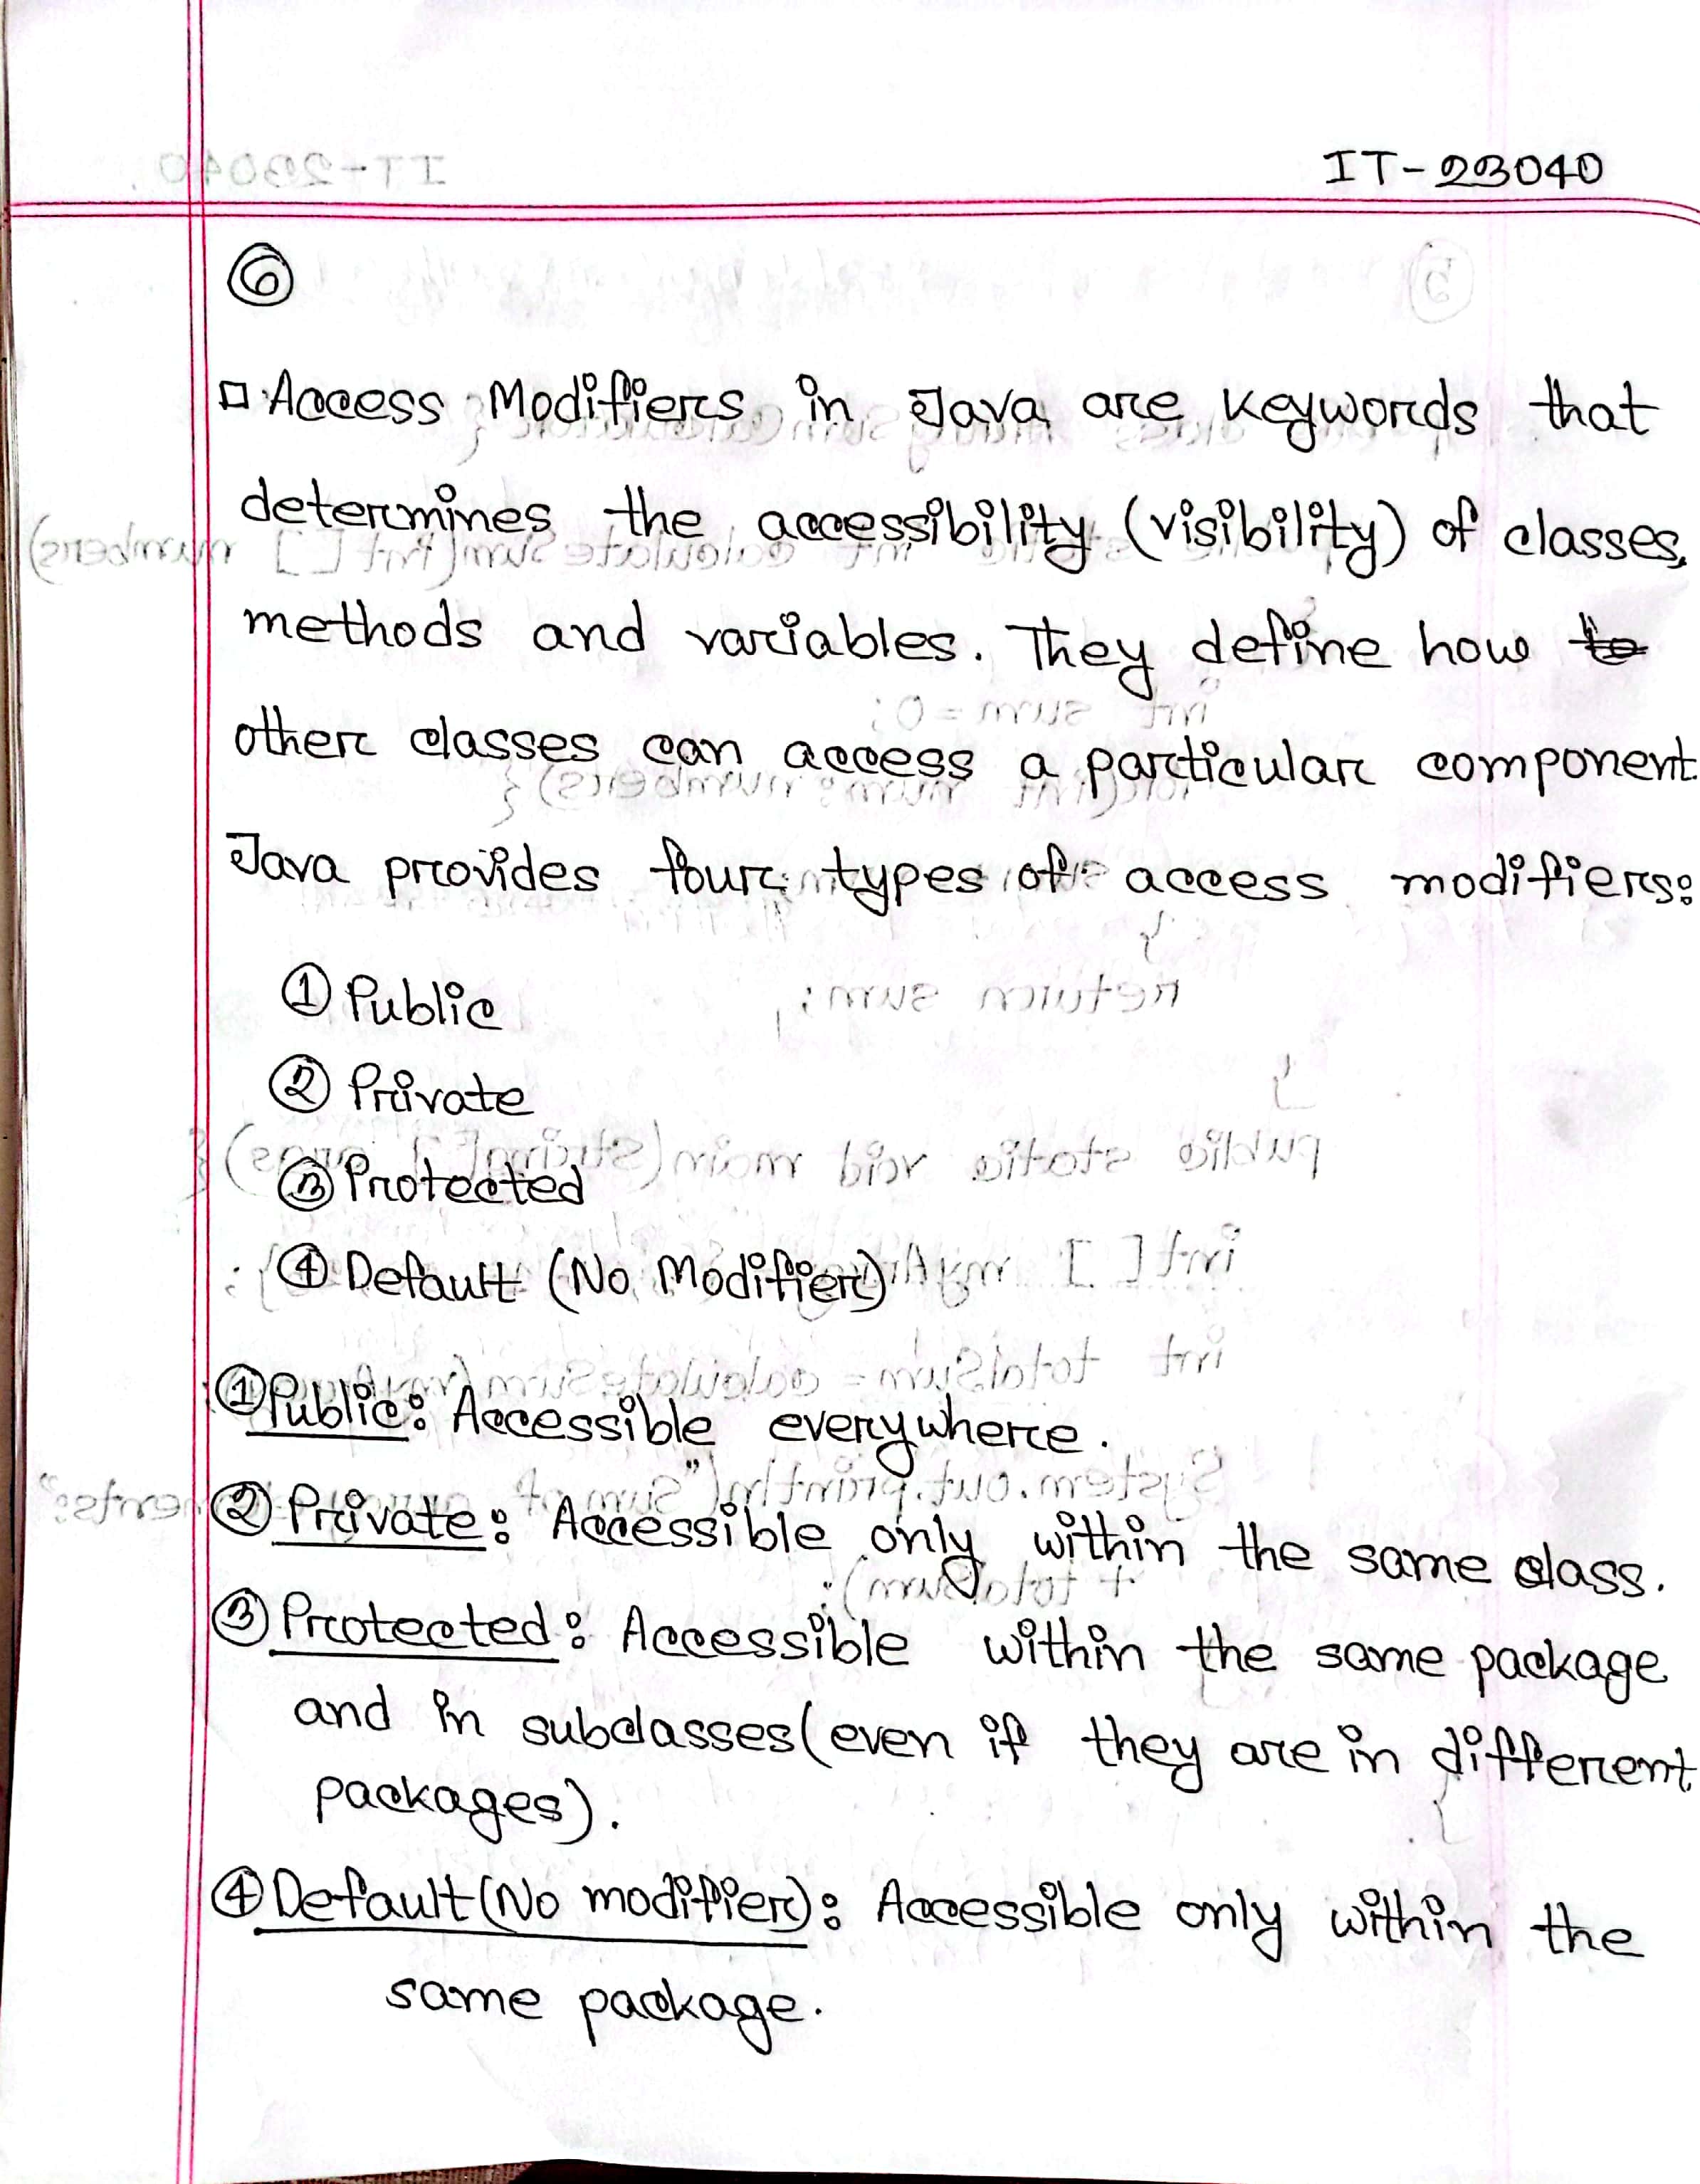 IT-23040
6
□ Access Modifiers in Java are keywords that
determines the accessibility (visibility) of classes,
methods and variables. They define how to
other classes can access a particular component
Java provides four types of access modifiers:
① Public
② Private
③ Protected
④ Default (No Modifier)
① Public: Accessible everywhere.
② Private: Accessible only within the same class.
③ Protected: Accessible within the same package
and in subclasses (even if they are in different
packages).
④ Default (No modifier): Accessible only within the
same package.